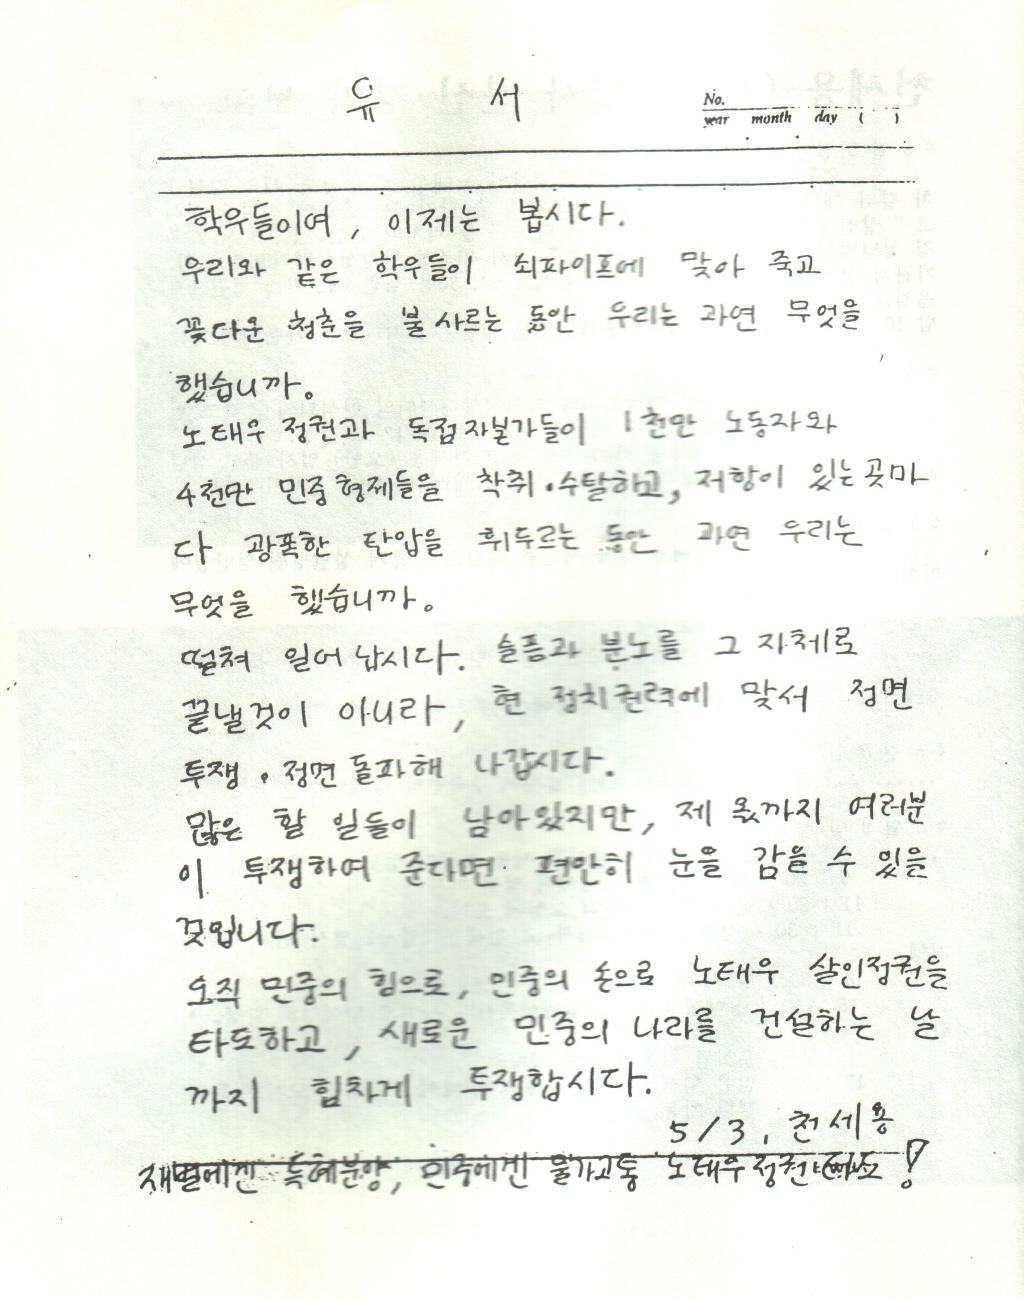 유 서
No.
year month day ( )
학우들이여, 이제는 봅시다.
우리와 같은 학우들이 쇠파이프에 맞아 죽고
꽃다운 청춘을 불사르는 동안 우리는 과연 무엇을
했습니까.
노태우 정권과 독점자본가들이 1천만 노동자와
4천만 민중 형제들을 착취·수탈하고, 저항이 있는 곳마
다 광폭한 탄압을 휘두르는 동안 과연 우리는
무엇을 했습니까.
떨쳐 일어 납시다. 슬픔과 분노를 그 자체로
끝낼것이 아니라, 현 정치권력에 맞서 정면
투쟁·정면돌파해 나갑시다.
많은 할 일들이 남아있지만, 제 몫까지 여러분
이 투쟁하여 준다면 편안히 눈을 감을 수 있을
것입니다.
오직 민중의 힘으로, 민중의 손으로 노태우 살인정권을
타도하고, 새로운 민중의 나라를 건설하는 날
까지 힘차게 투쟁합시다.
5/3, 천세용
재벌에겐 특혜분양, 민중에겐 물가고통 노태우정권 타도!